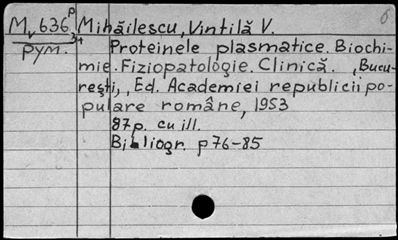 M,636 p Mihăilescu, Vintilă V.
рум. Proteinele plasmatice. Biochi-
mie. Fiziopatologie. Clinică. ,Bucu-
rești,, Ed. Academiei republicii po-
pulare romăne, 1953
87 p. cu ill.
Bibliogr. p 76-85